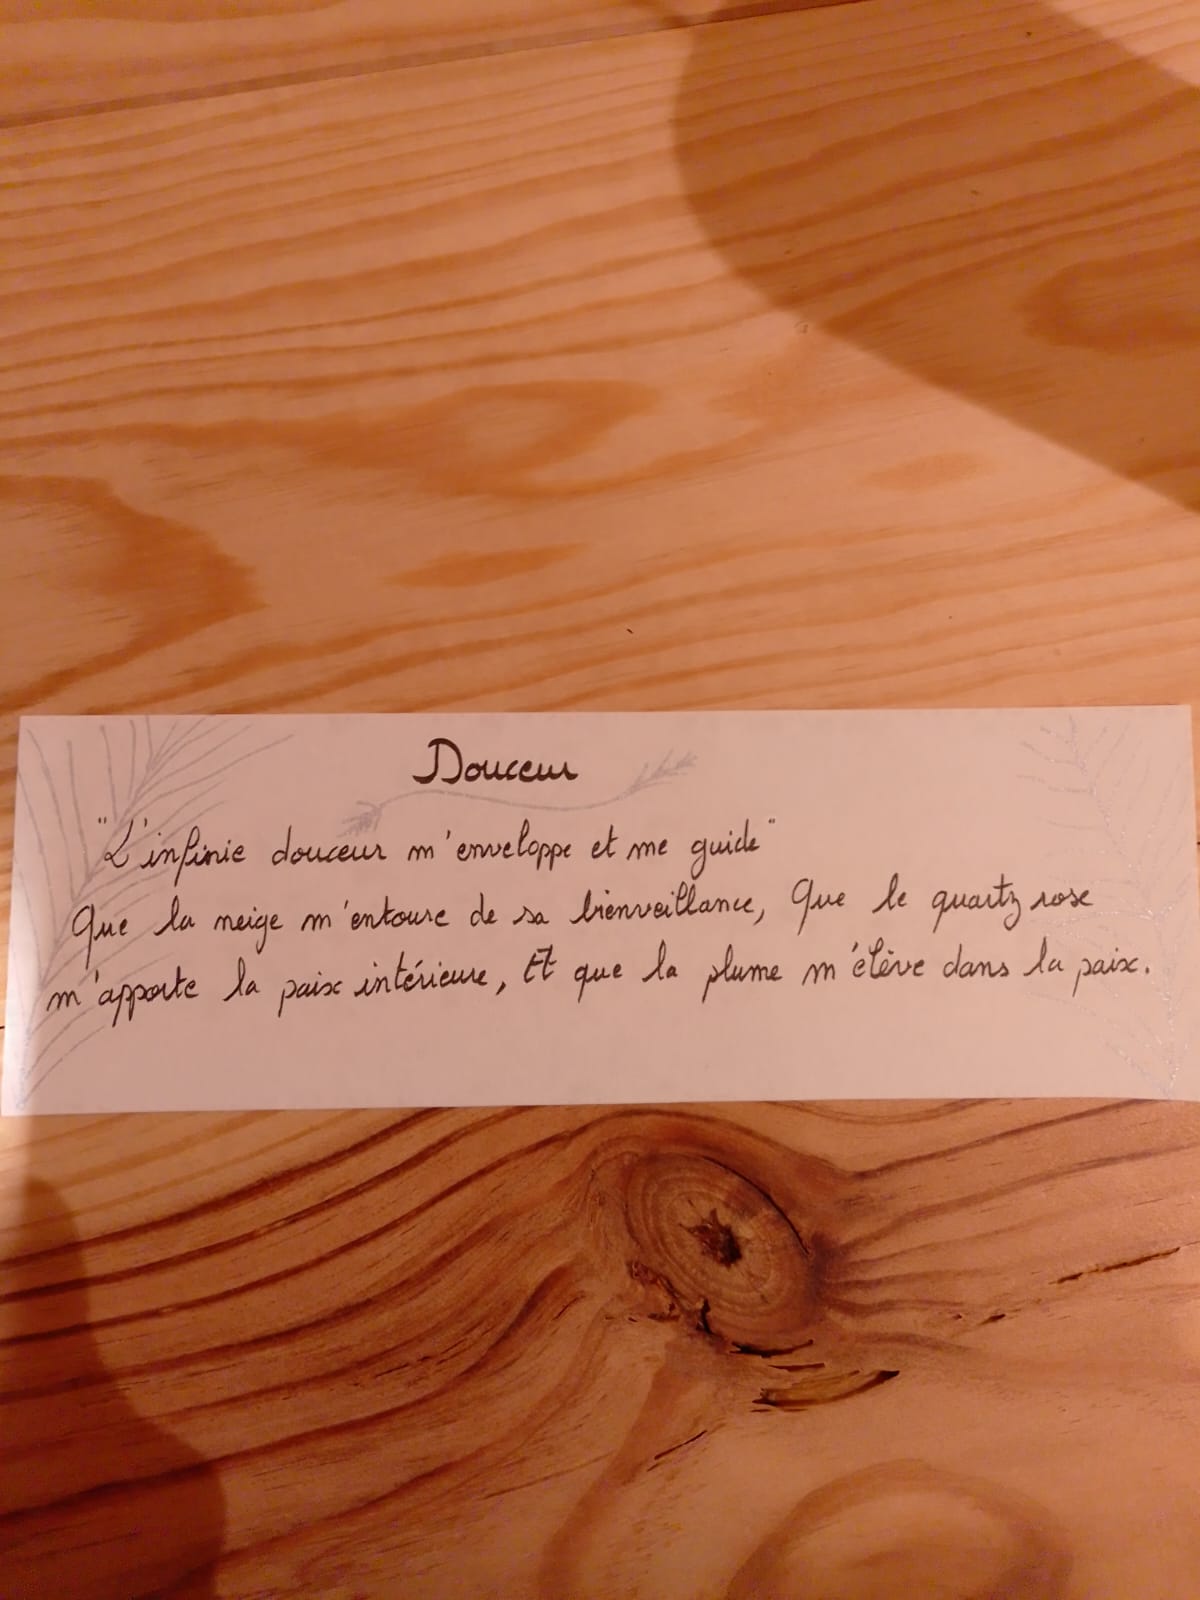 Douceur
"L'infinie douceur m'enveloppe et me guide"
Que la neige m'entoure de sa bienveillance, Que le quartz rose
m'apporte la paix intérieure, Et que la plume m'élève dans la paix.